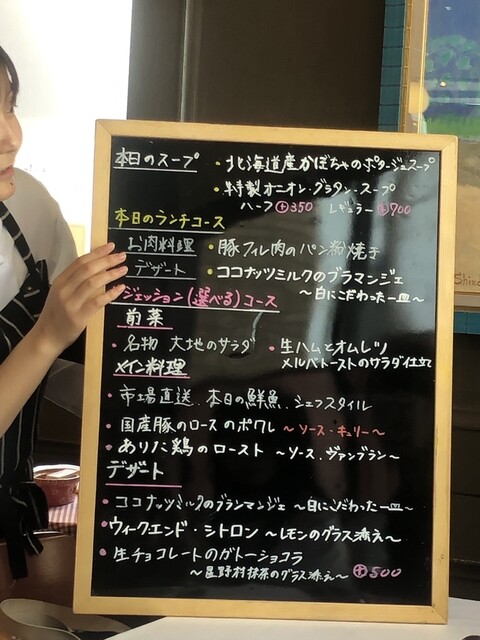 本日のスープ ・北海道産かぼちゃのポタージュスープ
・特製オニオン・グラタン・スープ
ハーフ⊕350 レギュラー⊕700
本日のランチコース
お肉料理 ・豚フィレ肉のパン粉焼き
デザート ・ココナッツミルクのブラマンジェ
〜白にこだわった一皿〜
ジェッション(選べる)コース
前菜
・名物 大地のサラダ ・生ハムとオムレツ
メルバトーストのサラダ仕立
メイン料理
・市場直送、本日の鮮魚、シェフスタイル
・国産豚のロースのポワレ 〜ソース・キュリー〜
・ありた鶏のロースト 〜ソース、ヴァンブラン〜
デザート
・ココナッツミルクのブランマンジェ 〜白にこだわった一皿〜
・ウィークエンド・シトロン 〜レモンのグラス添え〜
・生チョコレートのガトーショコラ
〜星野村抹茶のグラス添え〜 ⊕500